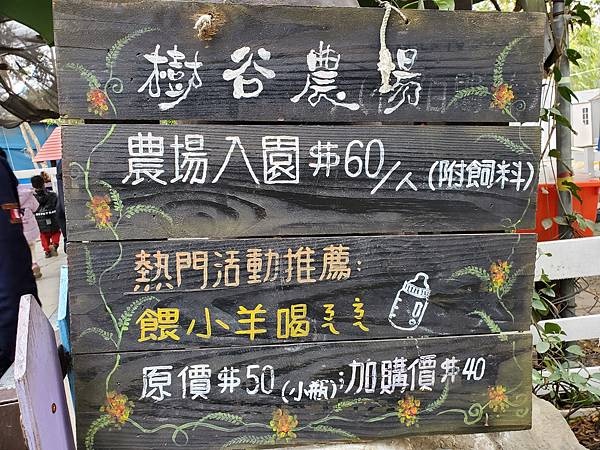 樹谷農場
農場入園 $60/人(附飼料)
熱門活動推薦:
餵小羊喝ㄋㄟㄋㄟ
原價$50(小瓶);加購價$40